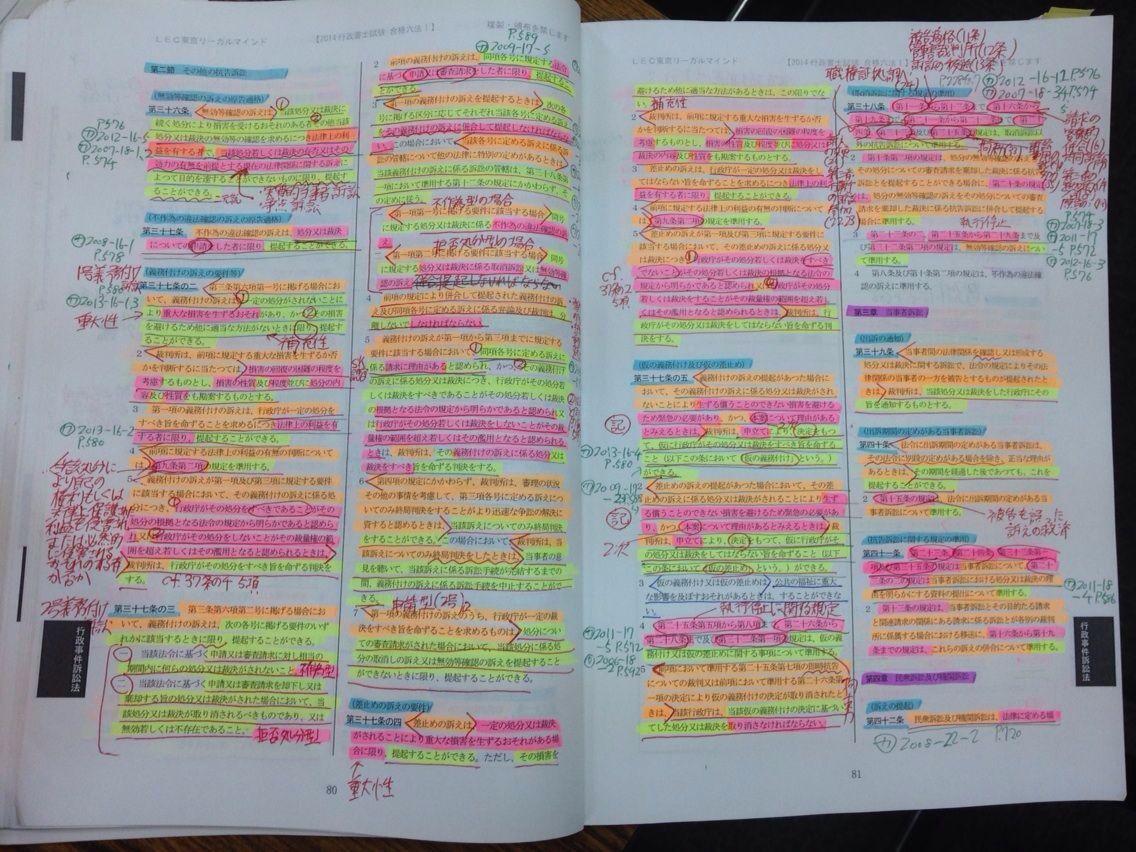 LEC東京リーガルマインド
【2014行政書士試験 合格六法!】
複製・頒布を禁じます
P.589
㋕2009-17-5
第二節 その他の抗告訴訟
(無効等確認の訴えの原告適格)
第三十六条 無効等確認の訴えは、当該処分又は裁決に
続く処分により損害を受けるおそれのある者その他当該
処分又は裁決の無効等の確認を求めるにつき法律上の利
益を有する者で、当該処分若しくは裁決の存否又はその
効力の有無を前提とする現在の法律関係に関する訴えに
よって目的を達することができないものに限り、提起す
ることができる。
P.576
2012-16-5
2007-18-1
P.574
(不作為の違法確認の訴えの原告適格)
第三十七条 不作為の違法確認の訴えは、処分又は裁決
についての申請をした者に限り、提起することができる。
2008-16-1
P.585
(義務付けの訴えの要件等)
第三十七条の二 第三条第六項第一号に掲げる場合にお
いて、義務付けの訴えは、一定の処分がされないことに
より重大な損害を生ずるおそれがあり、かつ、その損害
を避けるため他に適当な方法がないときに限り、提起す
ることができる。
2013-16-1.3
重大性
補充性
2 裁判所は、前項に規定する重大な損害を生ずるか否か
を判断するに当たつては、損害の回復の困難の程度を
考慮するものとし、損害の性質及び程度並びに処分の内
容及び性質をも勘案するものとする。
3 第一項の義務付けの訴えは、行政庁が一定の処分を
すべき旨を命ずることを求めるにつき法律上の利益を有
する者に限り、提起することができる。
2013-16-2
P.580
4 前項に規定する法律上の利益の有無の判断については、
第九条第二項の規定を準用する。
5 義務付けの訴えが第一項及び第三項に規定する要件
に該当する場合において、その義務付けの訴えに係る処
分につき、行政庁がその処分をすべきであることがその
処分の根拠となる法令の規定から明らかであると認めら
れ又は行政庁がその処分をしないことがその裁量権の範
囲を超え若しくはその濫用となると認められるときは、
裁判所は、行政庁がその処分をすべき旨を命ずる判決を
する。
cf 37条の4 5項
第三十七条の三 第三条第六項第二号に掲げる場合にお
いて、義務付けの訴えは、次の各号に掲げる要件のいず
れかに該当するときに限り、提起することができる。
一 当該法令に基づく申請又は審査請求に対し相当の
期間内に何らの処分又は裁決がされないこと。
不作為型
二 当該法令に基づく申請又は審査請求を却下し又は
棄却する旨の処分又は裁決がされた場合において、当
該処分又は裁決が取り消されるべきものであり、又は
無効若しくは不存在であること。
拒否処分型
行政事件訴訟法
2 前項の義務付けの訴えは、同項各号に規定する法令
に基づく申請又は審査請求をした者に限り、提起するこ
とができる。
3 第一項の義務付けの訴えを提起するときは、次の各
号に掲げる区分に応じてそれぞれ当該各号に定める訴え
をその義務付けの訴えに併合して提起しなければならな
い。この場合において、当該各号に定める訴えに係る訴
訟の管轄について他の法律に特別の定めがあるときは、
当該義務付けの訴えに係る訴訟の管轄は、第三十八条第
一項において準用する第十二条の規定にかかわらず、そ
の定めに従う。
不作為型の場合
一 第一項第一号に掲げる要件に該当する場合 同号
に規定する処分又は裁決に係る不作為の違法確認の訴
え
拒否処分型の場合
二 第一項第二号に掲げる要件に該当する場合 同号
に規定する処分又は裁決に係る取消訴訟又は無効等確
認の訴え
4 前項の規定により併合して提起された義務付けの訴え
及び同項各号に定める訴えに係る弁論及び裁判は、分
離しないでしなければならない。
5 義務付けの訴えが第一項から第三項までに規定する
要件に該当する場合において、同項各号に定める訴えに
係る請求に理由があると認められ、かつ、その義務付け
の訴えに係る処分又は裁決につき、行政庁がその処分若
しくは裁決をすべきであることがその処分若しくは裁決
の根拠となる法令の規定から明らかであると認められ又
は行政庁がその処分若しくは裁決をしないことがその裁
量権の範囲を超え若しくはその濫用となると認められる
ときは、裁判所は、その義務付けの訴えに係る処分又は
裁決をすべき旨を命ずる判決をする。
6 第四項の規定にかかわらず、裁判所は、審理の状況
その他の事情を考慮して、第三項各号に定める訴えにつ
いてのみ終局判決をすることがより迅速な争訟の解決に
資すると認めるときは、当該訴えについてのみ終局判決
をすることができる。この場合において、裁判所は、当
該訴えについてのみ終局判決をしたときは、当事者の意
見を聴いて、当該訴えに係る訴訟手続が完結するまでの
間、義務付けの訴えに係る訴訟手続を中止することがで
きる。
申請型(2号)
7 第一項の義務付けの訴えのうち、行政庁が一定の裁
決をすべき旨を命ずることを求めるものは、処分につい
ての審査請求がされた場合において、当該処分に係る処
分の取消しの訴え又は無効等確認の訴えを提起すること
ができないときに限り、提起することができる。
(差止めの訴えの要件)
第三十七条の四 差止めの訴えは、一定の処分又は裁決
がされることにより重大な損害を生ずるおそれがある場
合に限り、提起することができる。ただし、その損害を
重大性
80
LEC東京リーガルマインド
【2014行政書士試験 合格六法!】
避けるため他に適当な方法があるときは、この限りでな
い。
補充性
2 裁判所は、前項に規定する重大な損害を生ずるか否
かを判断するに当たつては、損害の回復の困難の程度を
考慮するものとし、損害の性質及び程度並びに処分又は
裁決の内容及び性質をも勘案するものとする。
3 差止めの訴えは、行政庁が一定の処分又は裁決をし
てはならない旨を命ずることを求めるにつき法律上の利
益を有する者に限り、提起することができる。
4 前項に規定する法律上の利益の有無の判断について
は、第九条第二項の規定を準用する。
5 差止めの訴えが第一項及び第三項に規定する要件に該
当する場合において、その差止めの訴えに係る処分又
は裁決につき、行政庁がその処分若しくは裁決をすべき
でないことがその処分若しくは裁決の根拠となる法令の
規定から明らかであると認められ又は行政庁がその処分
若しくは裁決をすることがその裁量権の範囲を超え若し
くはその濫用となると認められるときは、裁判所は、行
政庁がその処分又は裁決をしてはならない旨を命ずる判
決をする。
(仮の義務付け及び仮の差止め)
第三十七条の五 義務付けの訴えの提起があつた場合に
おいて、その義務付けの訴えに係る処分又は裁決がされ
ないことにより生ずる償うことのできない損害を避ける
ため緊急の必要があり、かつ、本案について理由がある
とみえるときは、裁判所は、申立てにより、決定をもつ
て、仮に行政庁がその処分又は裁決をすべき旨を命ずる
こと(以下この条において「仮の義務付け」という。)
ができる。
記
2013-16-4
P.580
2 差止めの訴えの提起があつた場合において、その差
止めの訴えに係る処分又は裁決がされることにより生ず
る償うことのできない損害を避けるため緊急の必要があ
り、かつ、本案について理由があるとみえるときは、裁
判所は、申立てにより、決定をもつて、仮に行政庁がそ
の処分又は裁決をしてはならない旨を命ずること(以下
この条において「仮の差止め」という。)ができる。
記
3 仮の義務付け又は仮の差止めは、公共の福祉に重大
な影響を及ぼすおそれがあるときは、することができな
い。
執行停止に関する規定
4 第二十五条第五項から第八項まで、第二十六条から
第二十八条まで及び第三十三条第一項の規定は、仮の義
務付け又は仮の差止めに関する事項について準用する。
5 前項において準用する第二十五条第七項の即時抗告
についての裁判又は前項において準用する第二十六条第
一項の決定により仮の義務付けの決定が取り消されたと
きは、当該行政庁は、当該仮の義務付けの決定に基づい
てした処分又は裁決を取り消さなければならない。
2011-17
-5 P.572
2006-18
被告適格(11条)
管轄裁判所(12条)
2012-16-12 P.576
2007-18-34 P.574
(取消訴訟に関する規定の準用)
第三十八条 第十一条から第十三条まで、第十六条から
第十九条まで、第二十一条から第二十三条まで、第二十
四条、第三十三条及び第三十五条の規定は、取消訴訟以
外の抗告訴訟について準用する。
2 第十条第二項の規定は、処分の無効等確認の訴えと
その処分についての審査請求を棄却した裁決に係る抗告
訴訟とを提起することができる場合に、第二十条の規定
は、処分の無効等確認の訴えをその処分についての審査
請求を棄却した裁決に係る抗告訴訟に併合して提起する
場合に準用する。
執行停止
3 第二十三条の二、第二十五条から第二十九条まで及
び第三十二条第二項の規定は、無効等確認の訴えについ
て準用する。
4 第八条及び第十条第二項の規定は、不作為の違法確
認の訴えに準用する。
2011-17
-5 P.572
2012-16-3
P.576
第三章 当事者訴訟
(出訴の通知)
第三十九条 当事者間の法律関係を確認し又は形成する
処分又は裁決に関する訴訟で、法令の規定によりその法
律関係の当事者の一方を被告とするものが提起されたと
きは、裁判所は、当該処分又は裁決をした行政庁にその
旨を通知するものとする。
(出訴期間の定めがある当事者訴訟)
第四十条 法令に出訴期間の定めがある当事者訴訟は、
その法令に別段の定めがある場合を除き、正当な理由が
あるときは、その期間を経過した後であつても、これを
提起することができる。
2 第十五条の規定は、法令に出訴期間の定めがある当
事者訴訟について準用する。
被告を誤った
訴えの救済
(抗告訴訟に関する規定の準用)
第四十一条 第二十三条、第二十四条、第三十三条第一
項及び第三十五条の規定は当事者訴訟について、第二十
三条の二の規定は当事者訴訟における処分又は裁決の理
由を明らかにする資料の提出について準用する。
2 第十三条の規定は、当事者訴訟とその目的たる請求
と関連請求の関係にある請求に係る訴訟とが各別の裁判
所に係属する場合における移送に、第十六条から第十九
条までの規定は、これらの訴えの併合について準用する。
2011-18
-4 P.586
第四章 民衆訴訟及び機関訴訟
(訴えの提起)
第四十二条 民衆訴訟及び機関訴訟は、法律に定める場
㋕2008-22-2 P.720
行政事件訴訟法
81